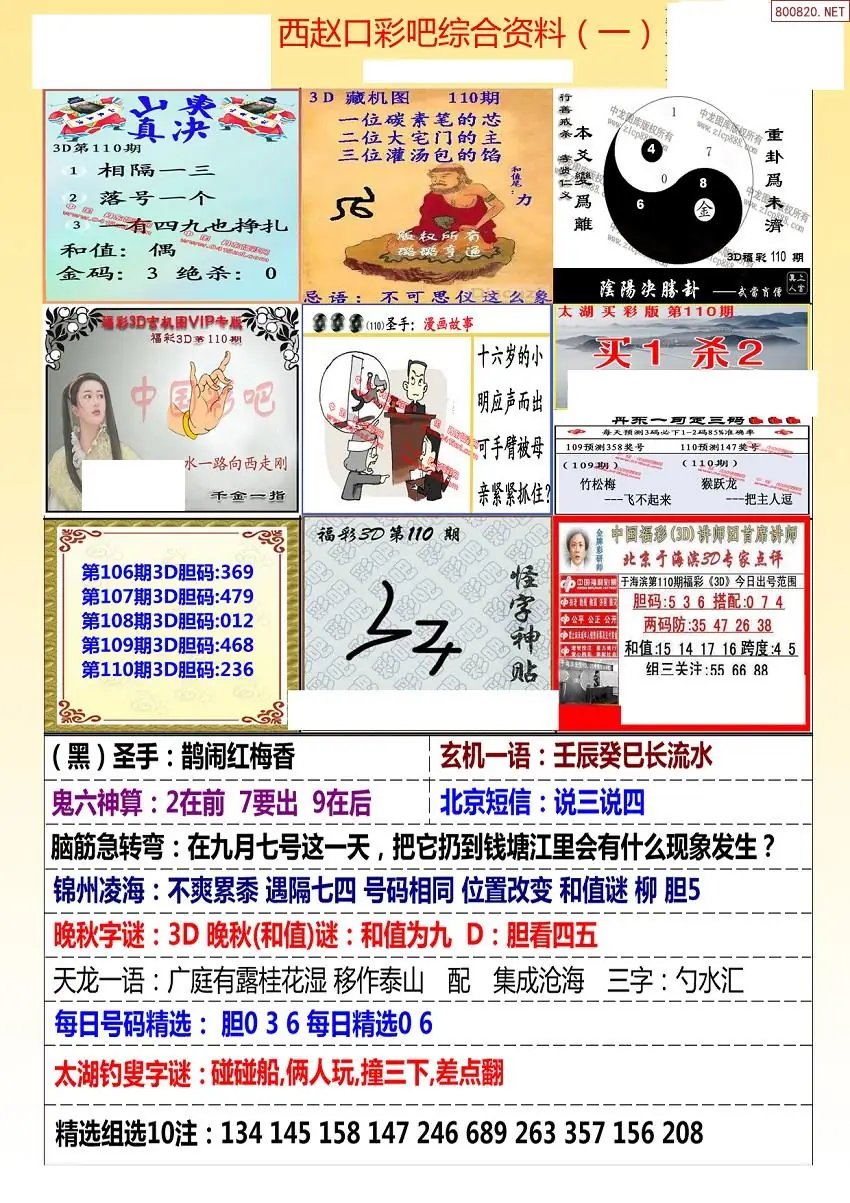 800820.NET
西赵口彩吧综合资料（一）
山東
真决
3D第110期
1 相隔一三
2 落号一个
3 一有四九也挣扎
和值：偶
金码：3 绝杀：0
3D 藏机图 110期
一位碳素笔的芯
二位大宅门的主
三位灌汤包的馅
和值尾：力
版权所有
璐璐亨通
忌语：不可思仪这么象
行善戒杀
本爻變爲離
重卦爲未濟
中龙图库版权所有
www.zlcp888.com
1
4
7
0
8
6
金
3D福彩 110 期
陰陽决勝卦
福彩3D玄机图VIP专版
福彩3D第110期
中国彩吧
水一路向西走刚
千金一指
(110)圣手：漫画故事
十六岁的小
明应声而出
可手臂被母
亲紧紧抓住?
太湖买彩版 第110期
买1 杀2
每天预测3码必下1-2码85%准确率
109预测358奖号 110预测147奖号
(109期) (110期)
竹松梅 猴跃龙
---飞不起来 ---把主人逗
第106期3D胆码:369
第107期3D胆码:479
第108期3D胆码:012
第109期3D胆码:468
第110期3D胆码:236
福彩3D第110 期
怪字神贴
金牌彩研师
中国福彩(3D)讲师团首席讲师
北京于海滨3D专家点评
中国福利彩票
于海滨第110期福彩《3D》今日出号范围
胆码:5 3 6 搭配:0 7 4
公平 公正 公开
两码防:35 47 26 38
和值:15 14 17 16 跨度:4 5
组三关注:55 66 88
(黑)圣手：鹊闹红梅香
玄机一语：壬辰癸巳长流水
鬼六神算：2在前 7要出 9在后
北京短信：说三说四
脑筋急转弯：在九月七号这一天，把它扔到钱塘江里会有什么现象发生？
锦州凌海：不爽累黍 遇隔七四 号码相同 位置改变 和值谜 柳 胆5
晚秋字谜：3D 晚秋(和值)谜：和值为九 D：胆看四五
天龙一语：广庭有露桂花湿 移作泰山 配 集成沧海 三字：勺水汇
每日号码精选： 胆0 3 6 每日精选0 6
太湖钓叟字谜：碰碰船,俩人玩,撞三下,差点翻
精选组选10注：134 145 158 147 246 689 263 357 156 208